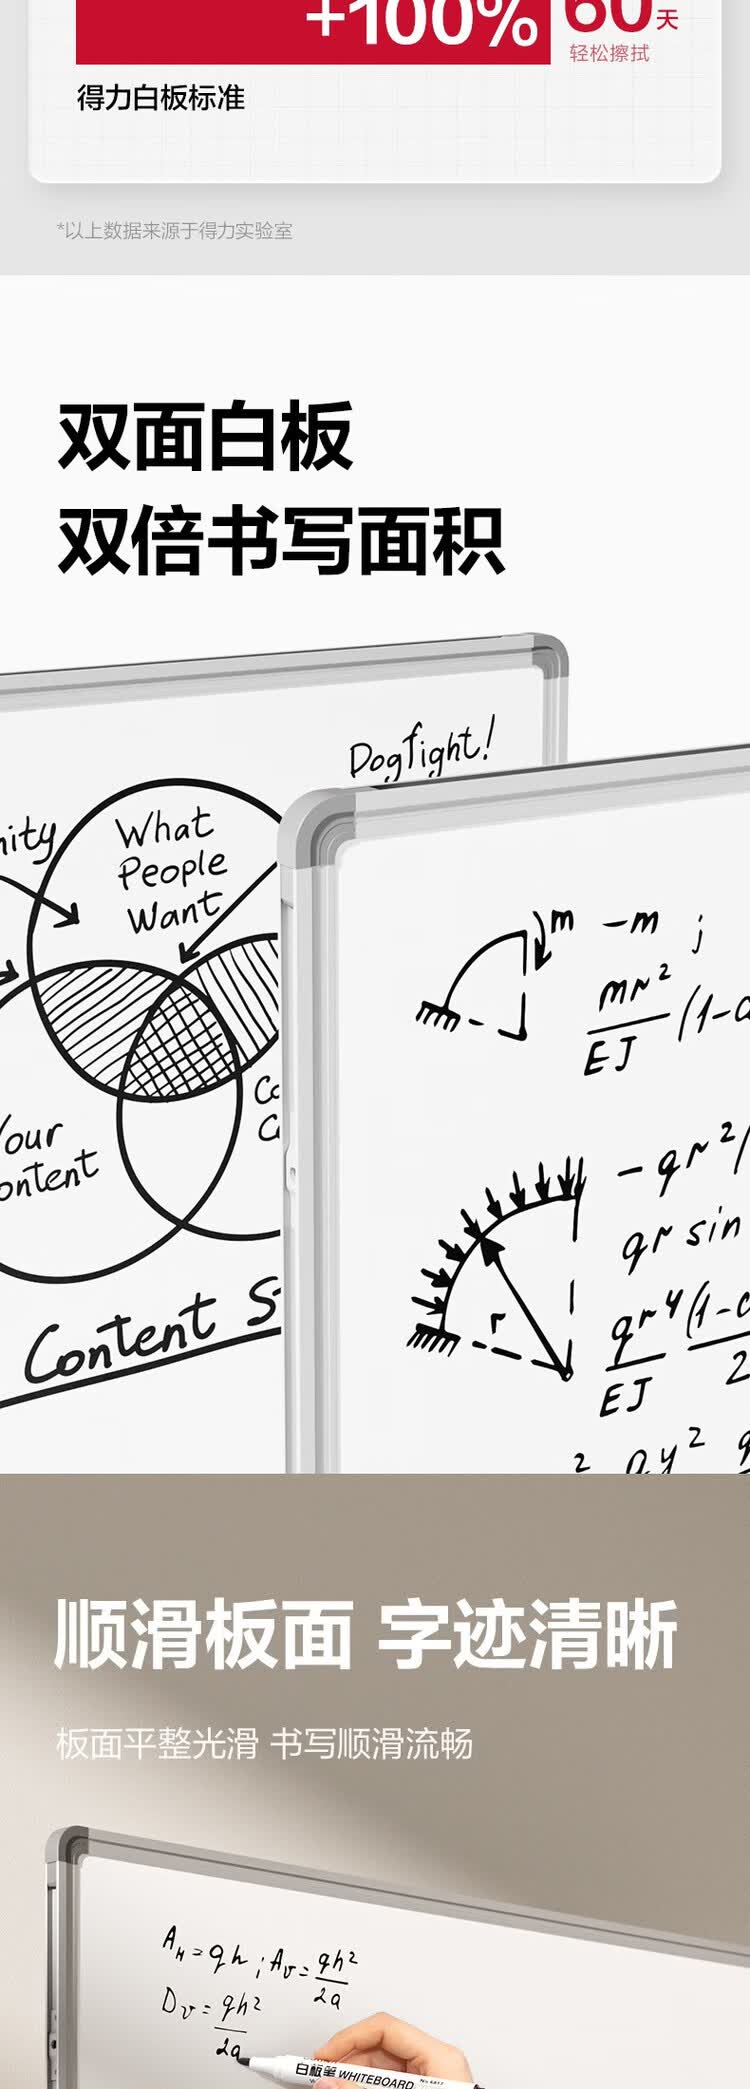 +100%
60天
轻松擦拭
得力白板标准
*以上数据来源于得力实验室
双面白板
双倍书写面积
Dogfight!
What
People
Want
Your
Content
m -m j
mr²
EJ
(1-c
-qr²/
qr sin
qr⁴(1-c
EJ 2
Content S
顺滑板面 字迹清晰
板面平整光滑 书写顺滑流畅
A_H=qh; A_v=qh²
2a
D_v=qh²
2a
白板笔 WHITEBOARD